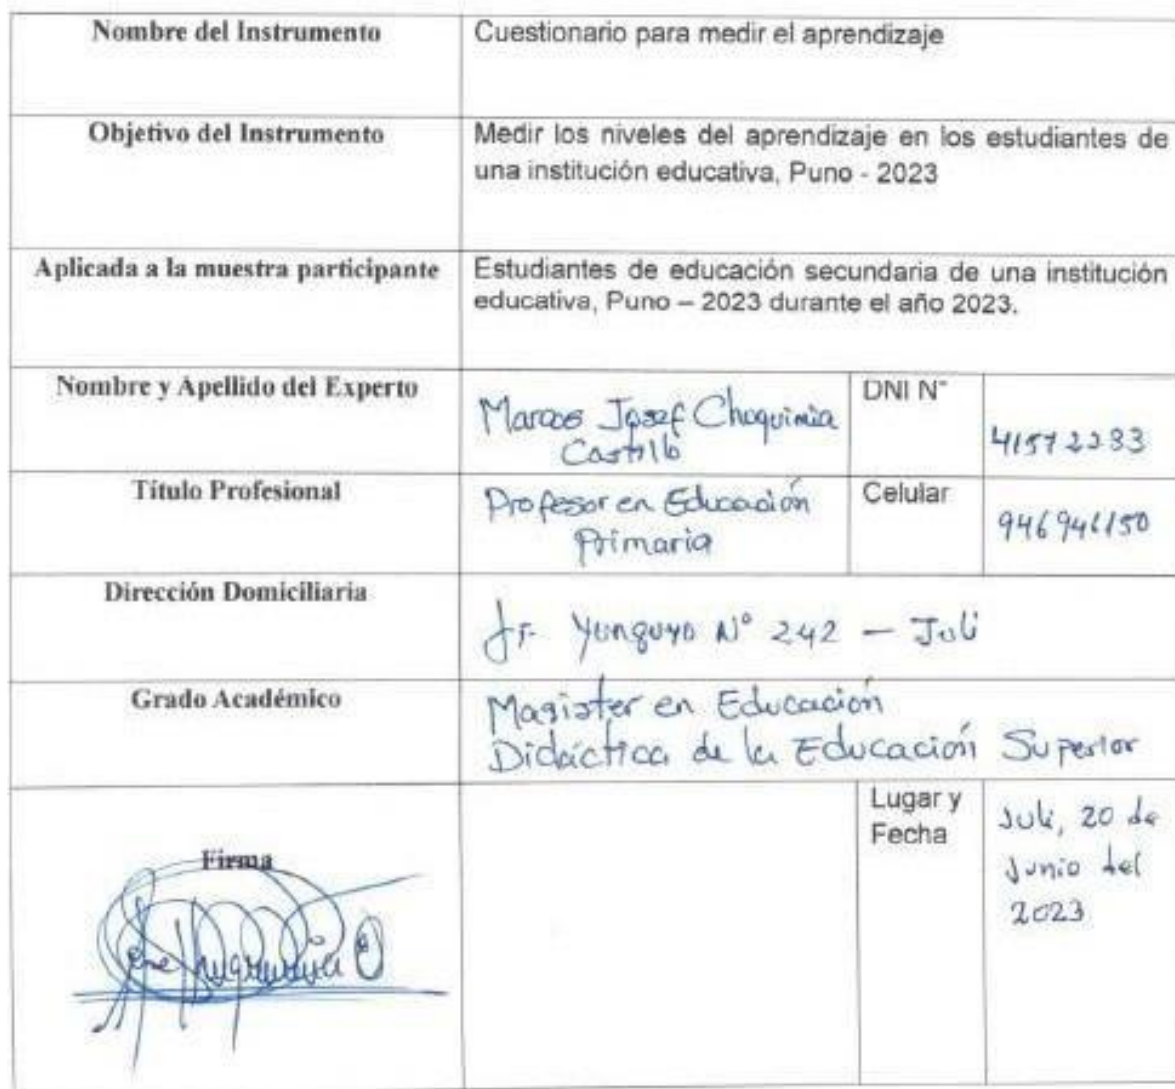 Nombre del Instrumento
Cuestionario para medir el aprendizaje
Objetivo del Instrumento
Medir los niveles del aprendizaje en los estudiantes de
una institución educativa, Puno - 2023
Aplicada a la muestra participante
Estudiantes de educación secundaria de una institución
educativa, Puno – 2023 durante el año 2023.
Nombre y Apellido del Experto
Marcos Josef Choquimia
Castillo
DNI N°
41572233
Título Profesional
Profesor en Educación
Primaria
Celular
946946150
Dirección Domiciliaria
Jr. Yunguyo N° 242 – Juli
Grado Académico
Magister en Educación
Didáctica de la Educación Superior
Firma
Lugar y
Fecha
Juli, 20 de
Junio del
2023